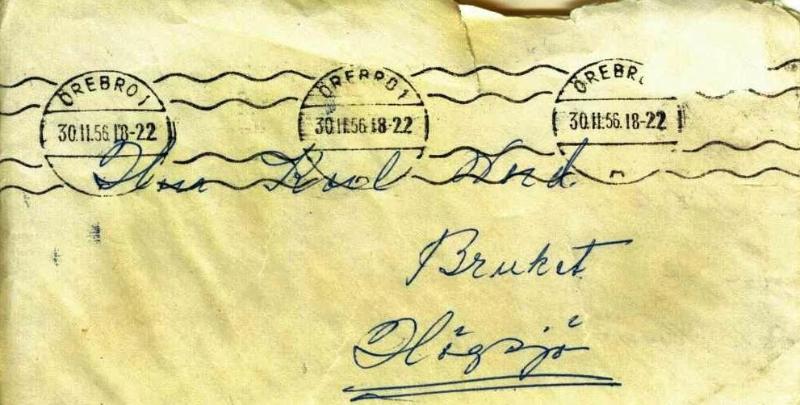 ÖREBRO 1 ÖREBRO 1 ÖREBRO
30.11.56.18-22 30.11.56.18-22 30.11.56.18-22
Herr Karl
Bruket
Högsjö